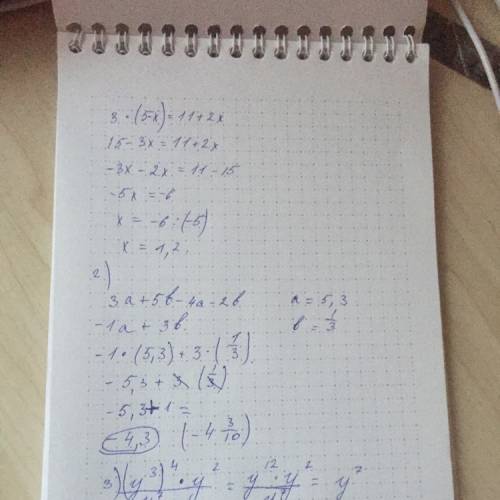 3 · (5-x) = 11+2x
15 - 3x = 11+2x
-3x - 2x = 11 - 15
-5x = -6
x = -6 : (-5)
x = 1,2.
2)
3a + 5b - 4a - 2b a = 5,3
-1a + 3b. b = 1/3
-1 · (5,3) + 3 · (1/3).
-5,3 + 3 (1/3)
-5,3 + 1 =
-4,3 (-4 3/10)
3) (y³)⁴ · y² = y¹² · y² = y⁷